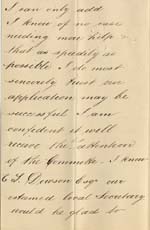 I can only add
I know of no case
needing more help
that as speedily as
possible I do most
sincerely trust our
application may be
successful I am
confident it will
receive the attention
of the Committee. I know
C. L. Dowson Esq our
esteemed local Secretary
would be glad to